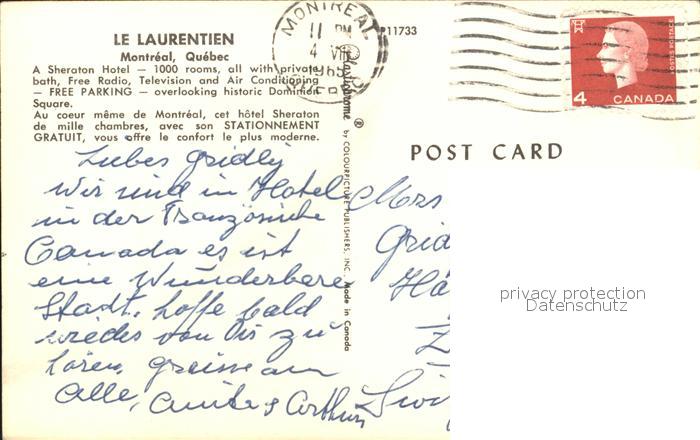 LE LAURENTIEN
Montréal, Québec
A Sheraton Hotel — 1000 rooms, all with private
bath, Free Radio, Television and Air Conditioning
— FREE PARKING — overlooking historic Dominion
Square.
Au coeur même de Montréal, cet hôtel Sheraton
de mille chambres, avec son STATIONNEMENT
GRATUIT, vous offre le confort le plus moderne.
Liebes Gridly
Wir sind in Hotel
in der Französische
Canada es ist
eine Wunderbare
Stadt. hoffe bald
wieder von Dir zu
hören,
alle, & Arthur
MONTREAL
11 PM
4
196
P11733
Plastichrome ®
by COLOURPICTURE PUBLISHERS, INC. Made in Canada
4 CANADA
POSTES POSTAGE
POST CARD
Mrs
Grid
Hä
Z
privacy protection
Datenschutz